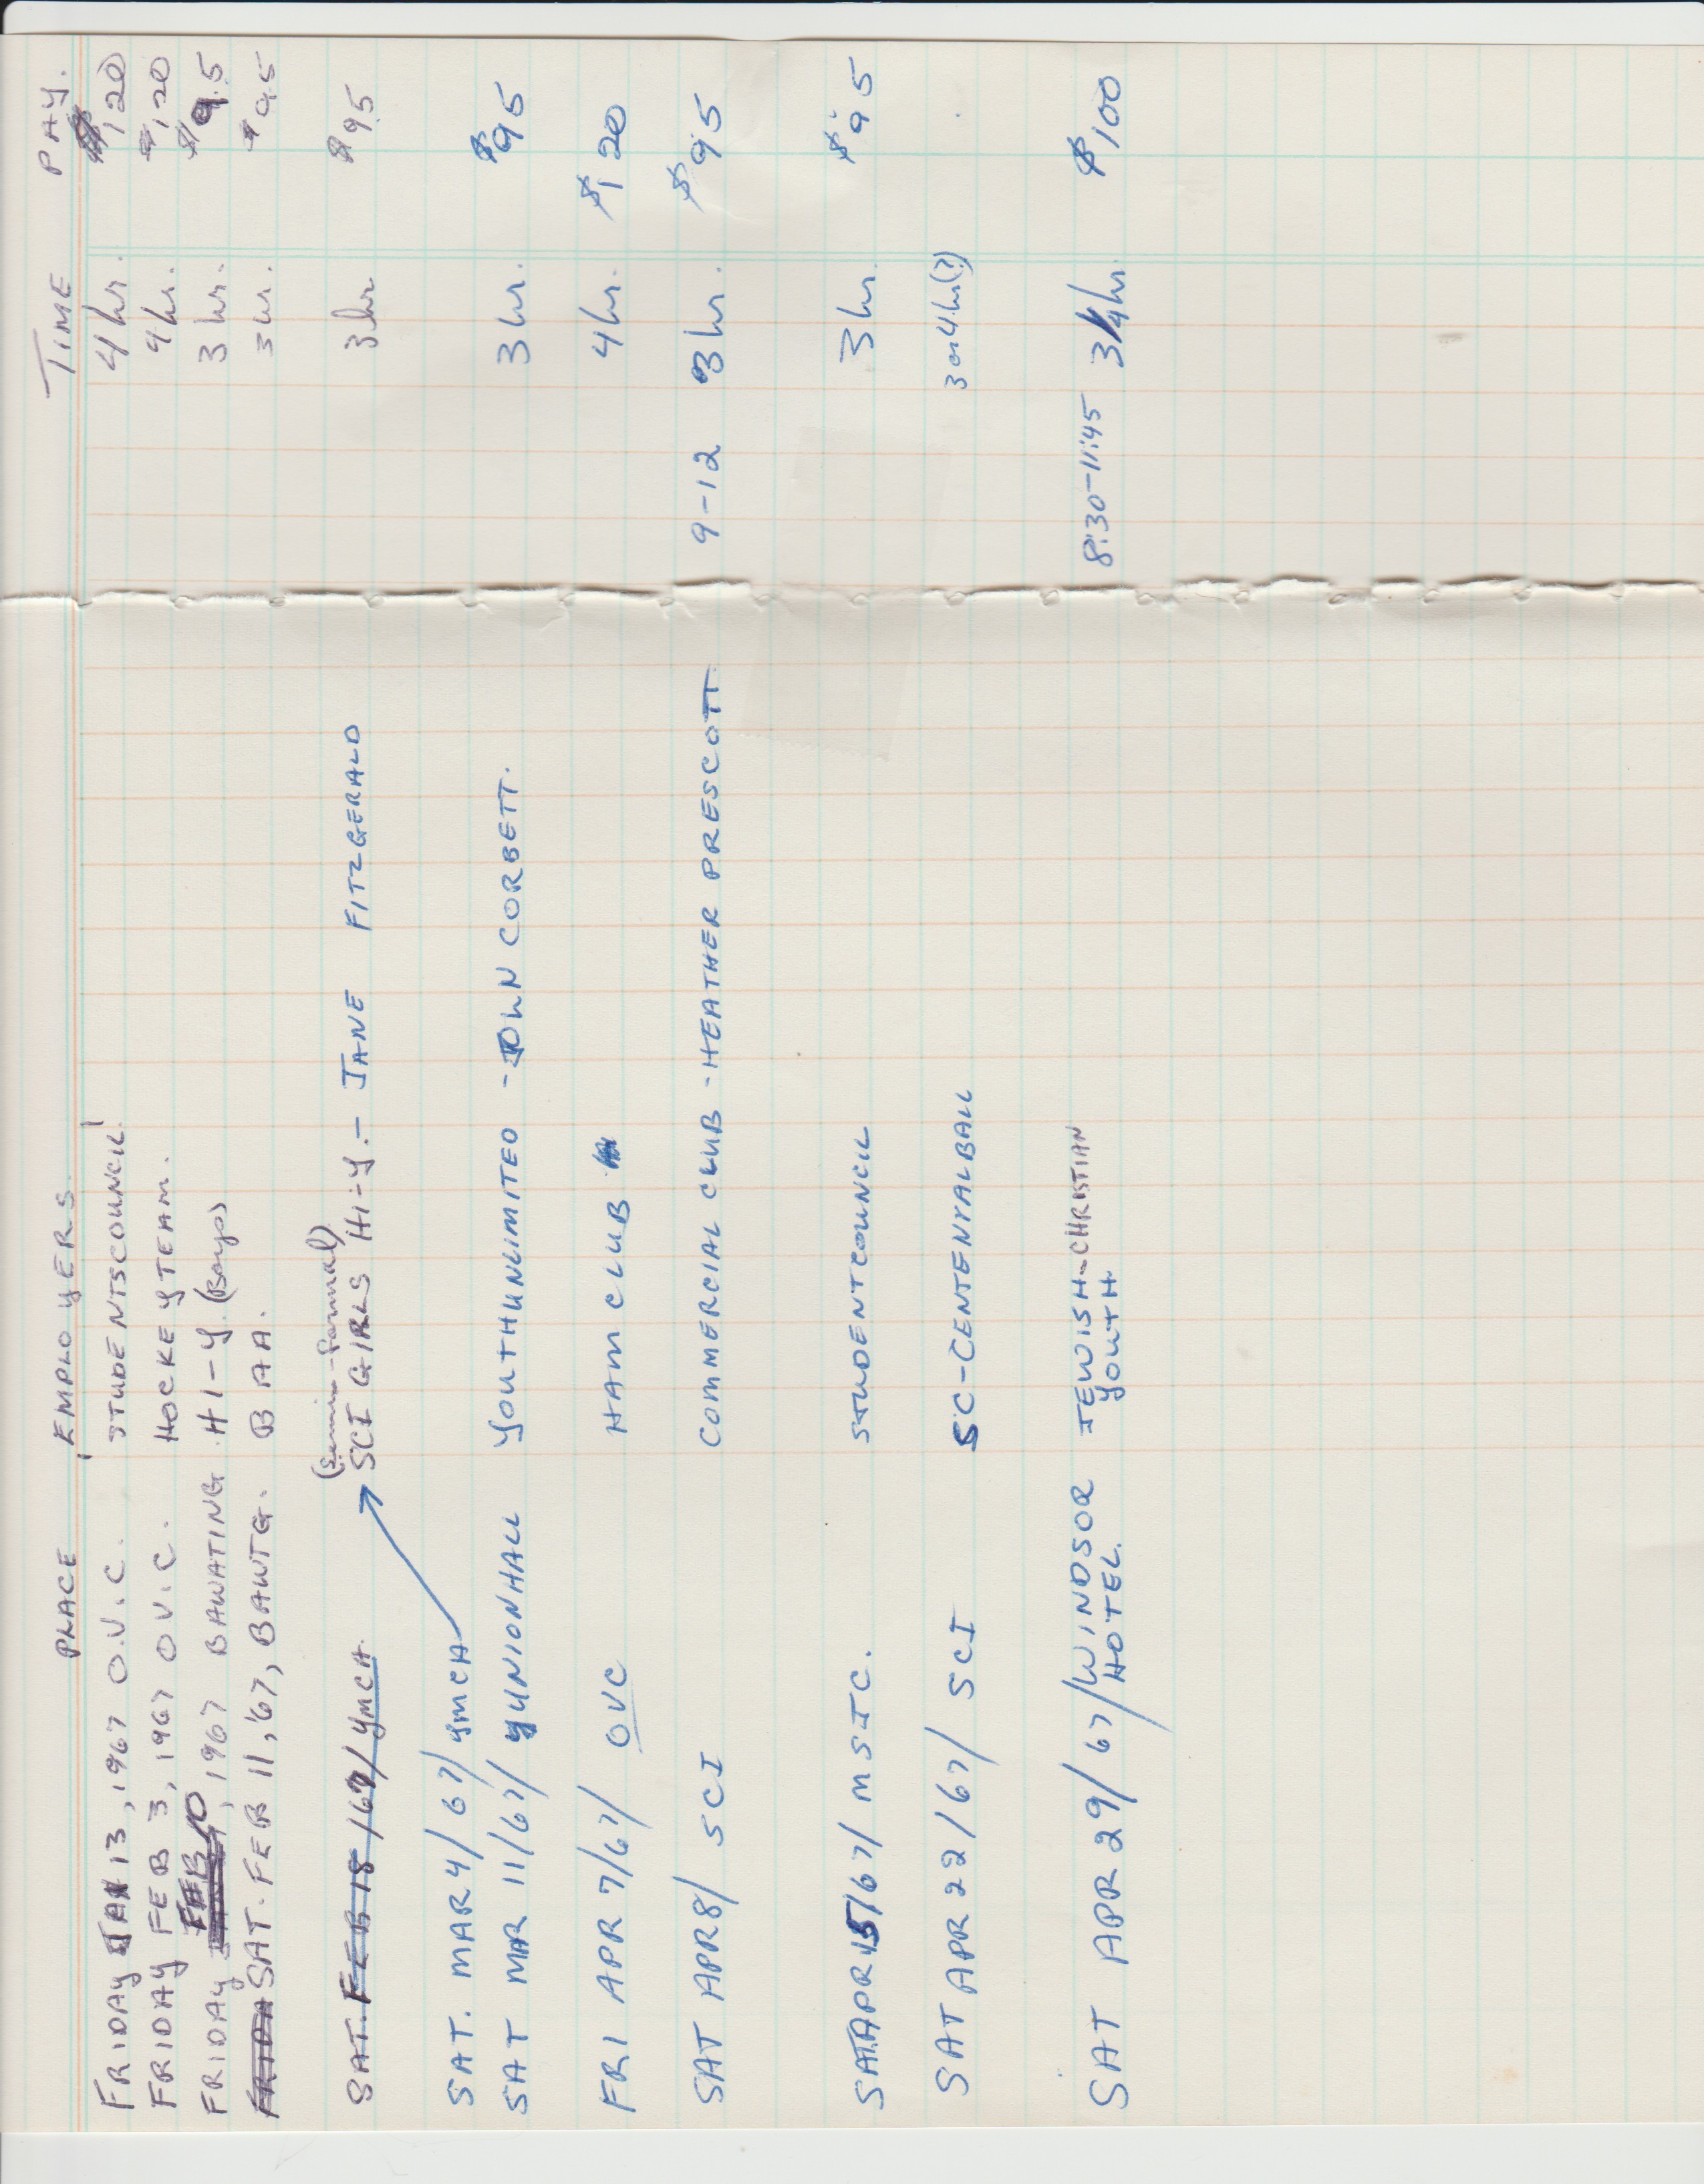 PLACE EMPLOYERS. TIME PAY.
FRIDAY JAN 13, 1967 O.V.C. STUDENTSCOUNCIL! 4 hr. $120
FRIDAY FEB 3, 1967 O.V.C. HOCKEY TEAM. 4 hr. $120
FRIDAY FEB 10, 1967 BAWATING HI-Y. (Boys) 3 hr. $95
FRIDA SAT. FEB 11, '67, BAWTG. BAA. 3 hr. $95
(semi-formal)
SAT. FEB 18/67/ YMCA. SCI GIRLS HI-Y.- JANE FITZGERALD 3 hr $95
SAT. MAR 4/67/ YMCA
SAT MAR 11/67/ UNIONHALL YOUTHUNLIMITED - CORBETT. 3 hr. $95
FRI APR 7/67/ OVC HAM CLUB 4 hr. $120
SAT APR 8/ SCI COMMERCIAL CLUB - HEATHER PRESCOTT 9-12 3 hr. $95
SAT. APR 15/67/ MSIC. STUDENTCOUNCIL 3 hr. $95
SAT APR 22/67/ SCI SC-CENTENYALBALL 3 or 4 hr(?)
SAT APR 29/67/ WINDSOR JEWISH-CHRISTIAN 8:30-11:45 3 1/4 hr. $100
HOTEL. YOUTH.